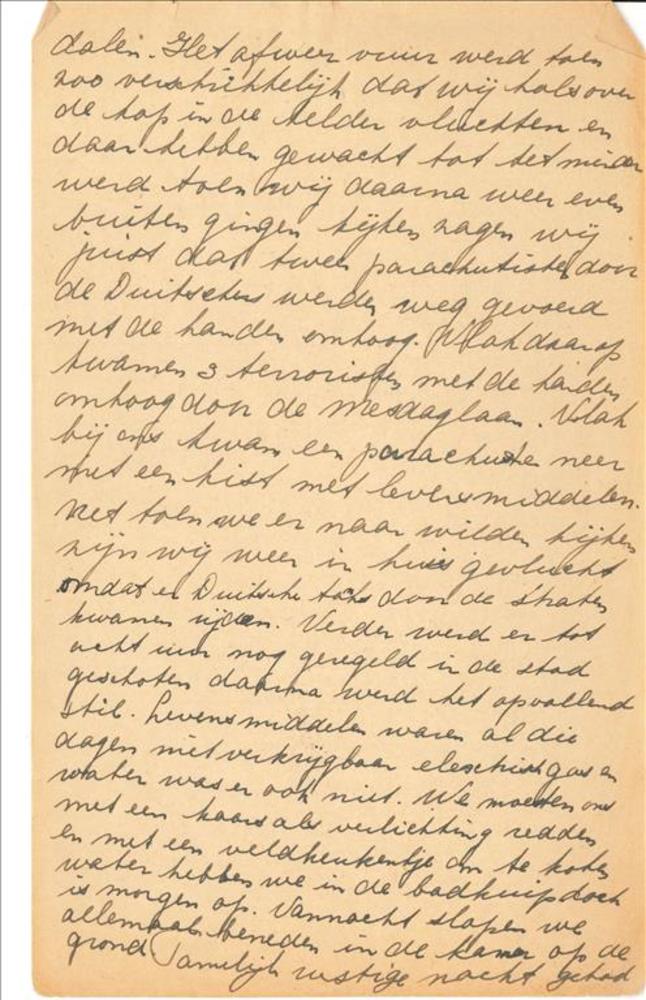 dalen. Het afweer vuur werd toen
zoo verschrikkelijk dat wij hals over
de kop in de kelder vluchtten en
daar hebben gewacht tot het minder
werd toen wij daarna weer even
buiten gingen kijken zagen wij
juist dat twee parachutisten door
de Duitschers werden weg gevoerd
met de handen omhoog. Vlak daarop
kwamen 3 terroristen met de handen
omhoog door de Mesdaglaan. Vlak
bij ons kwam een parachute neer
met een kist met levensmiddelen.
Net toen we er naar wilden kijken
zijn wij weer in huis gevlucht
omdat er Duitsche tanks door de straten
kwamen rijden. Verder werd er tot
acht uur nog geregeld in de stad
geschoten daarna werd het opvallend
stil. Levensmiddelen waren al die
dagen niet verkrijgbaar electrisch gas en
water was er ook niet. We moesten ons
met een kaars als verlichting redden
en met een veldkeukentje om te koken
water hebben we in de badkuip doch
is morgen op. Vannacht slapen we
allemaal beneden in de kamer op de
grond Tamelijk rustige nacht gehad